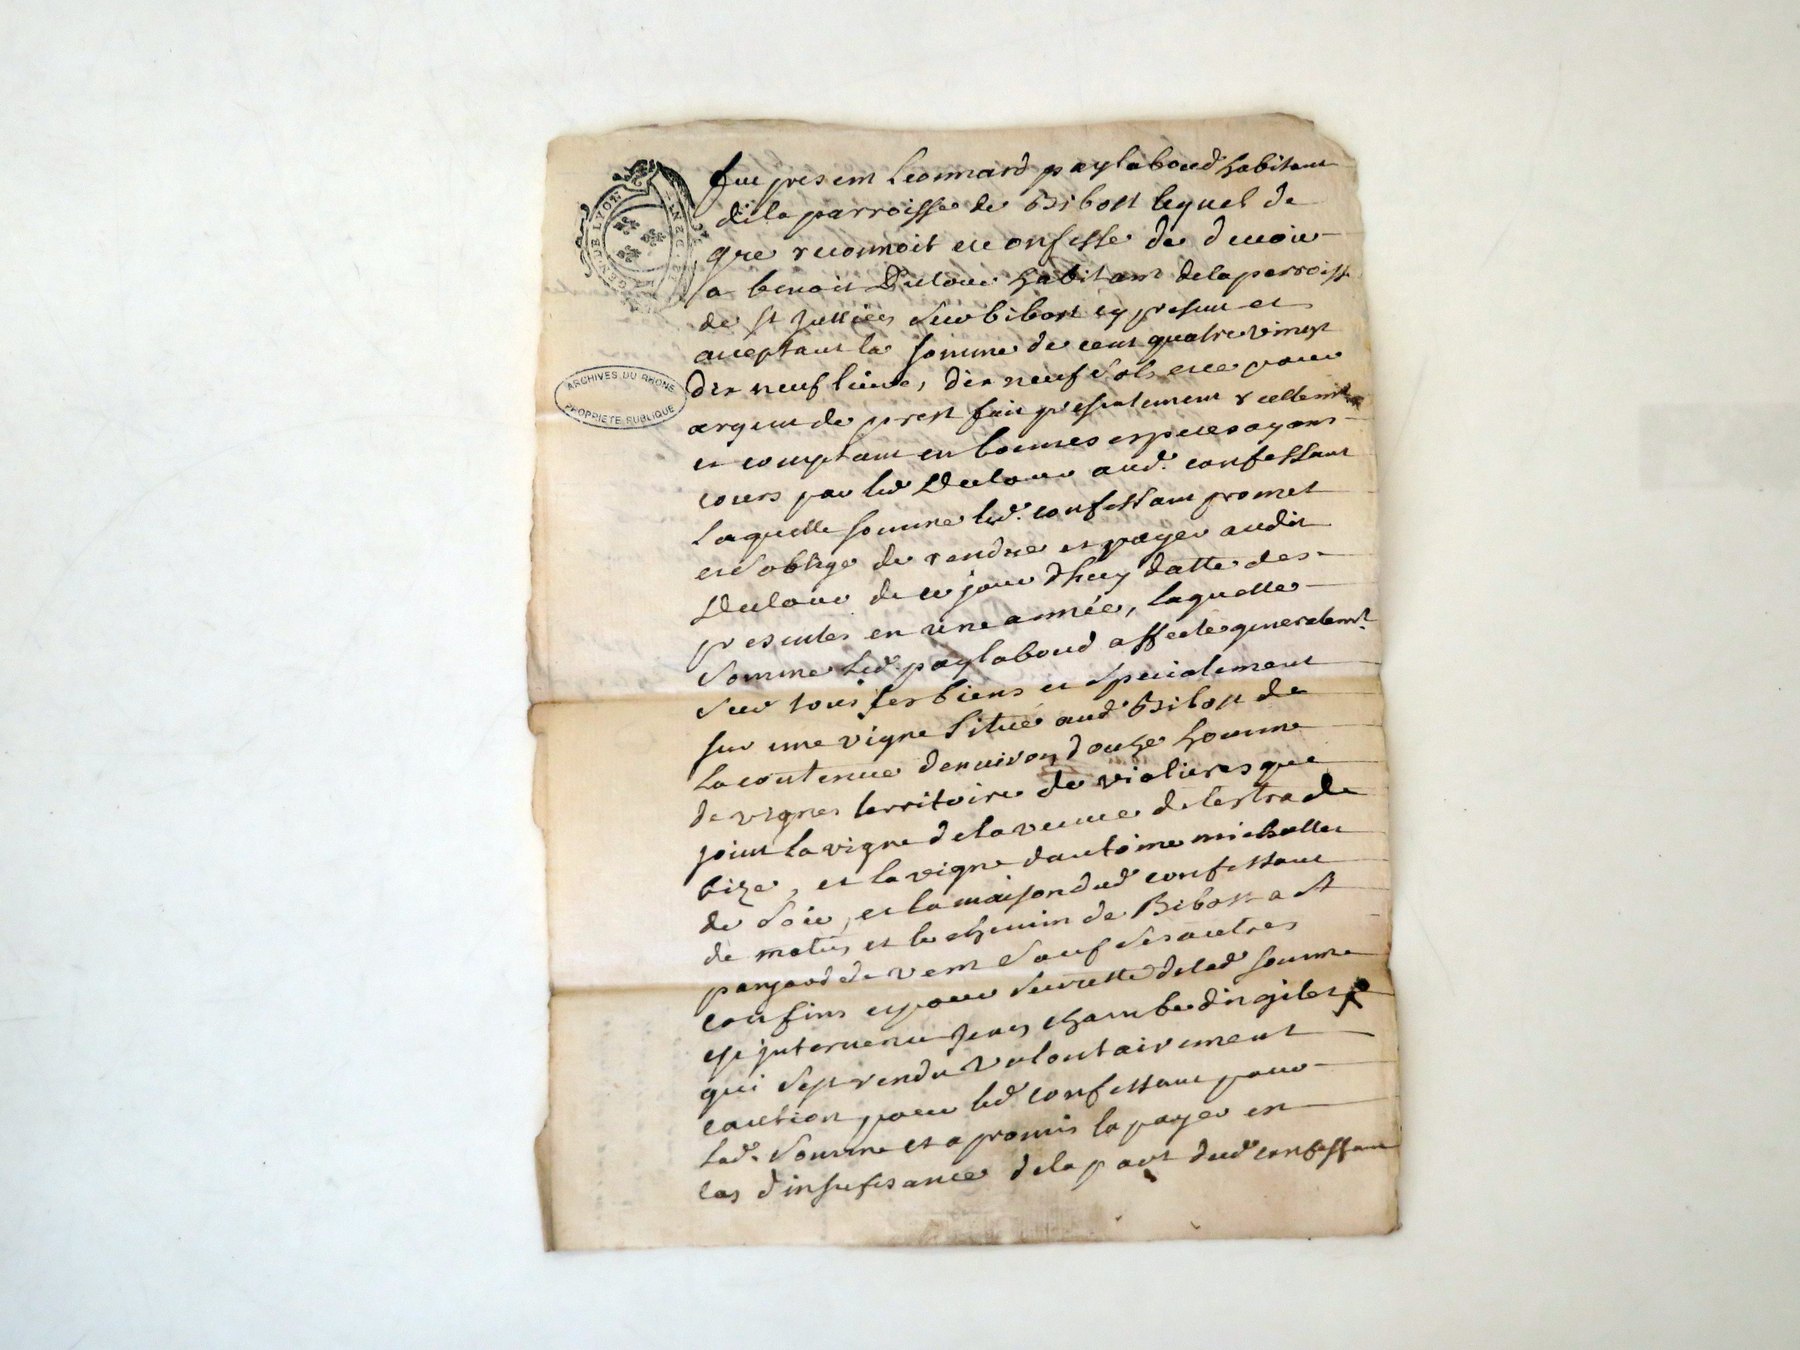 GEN. DE LYON
ARCHIVES DU RHONE
PROPRIETE PUBLIQUE
fut present Leonnard paylaboud habitant
dela parroisse de Bibost lequel de
gre reconnoit et confesse de devoir
a benoit Dulour habitant dela parroisse
de st Jullien sur bibost cy present et
acceptant la somme de cent quatre vingt
dix neuf livres, dix neuf sols et ce pour
argent de prest fait presentement reellemt
et comptant en bonnes especes ayant
cours par led Dulour aud. confessant
Laquelle somme led. confessant promet
et soblige de rendre et payer audit
Dulour de ce jour dhuy datte des
presentes en une année, laquelle
somme led. paylaboud affecte generalemt.
sur tous ses biens et specialement
sur une vigne situé aud Bibost de
la contenue denviron douze homme
de vignes territoire de violieres que
joint la vigne dela veuve delestra de
bize, et la vigne dantoine michallet
de soir, et la maison dud confessant
de matin et le chemin de Bibost a st
de vent sauf ses autres
confins et pour seurette delad somme
est intervenu Jean chambe
qui sest rendu volontairement
caution pour led confessant pour
lad. somme et a promis la payer en
cas dinsufisance dela part dud confessant